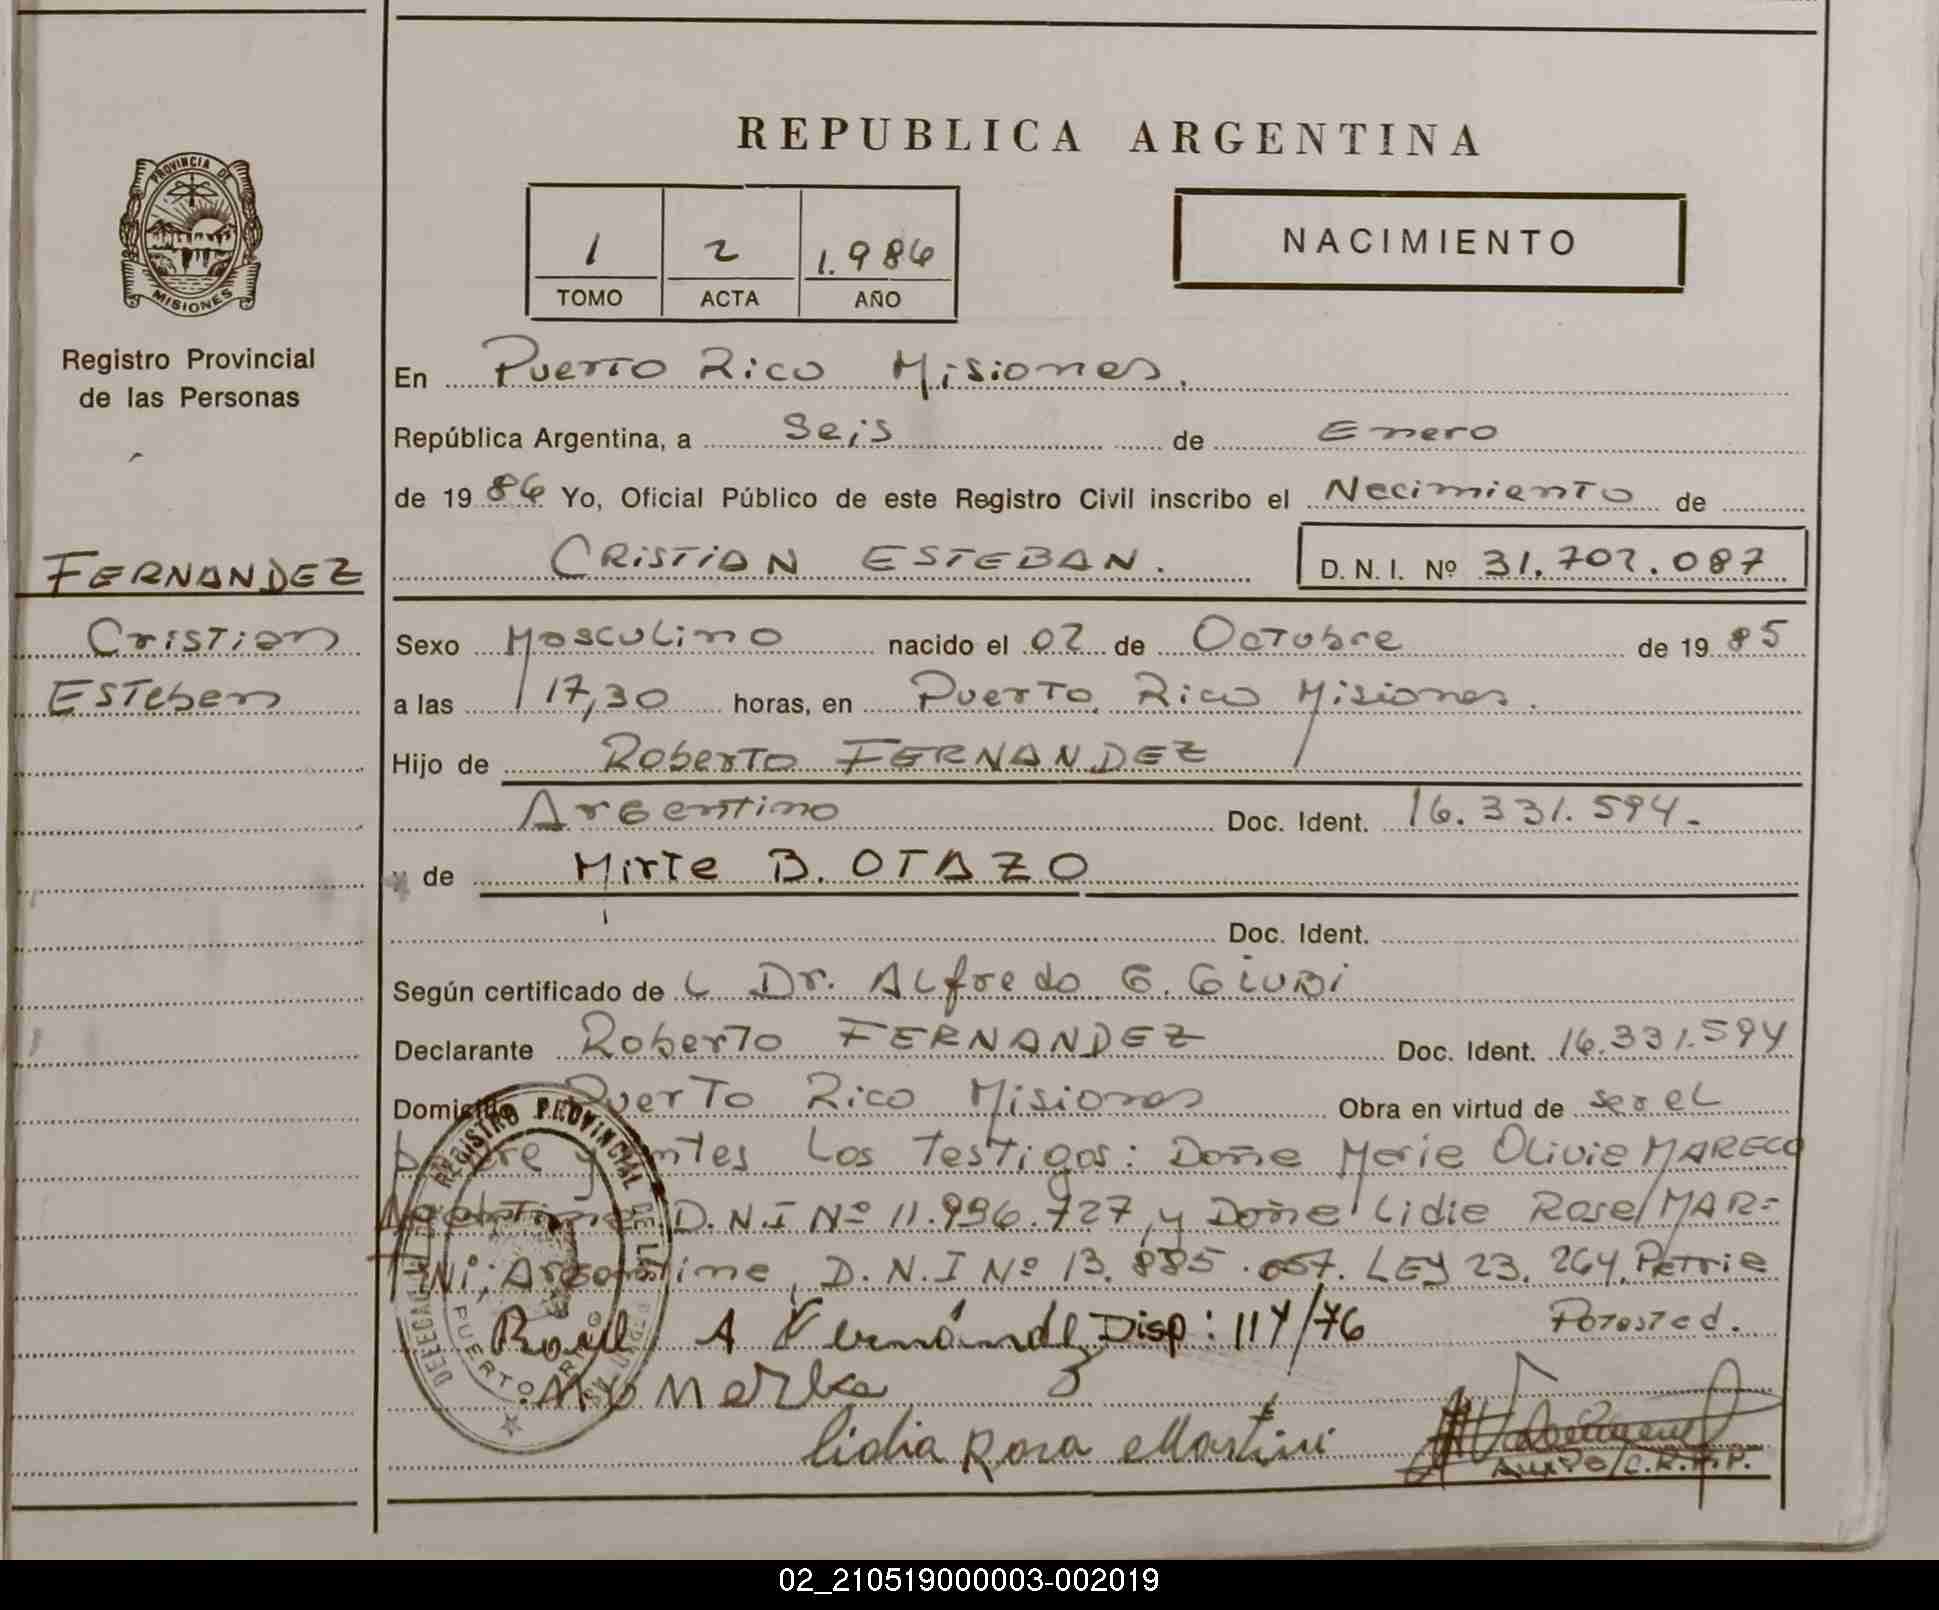 REPUBLICA ARGENTINA
PROVINCIA DE
MISIONES
1 2 1.986
TOMO ACTA AÑO
NACIMIENTO
Registro Provincial
de las Personas
En Puerto Rico Misiones.
República Argentina, a Seis de Enero
de 19 86 Yo, Oficial Público de este Registro Civil inscribo el Necimiento de
FERNANDEZ
CRISTIAN ESTEBAN. D. N. I. Nº 31.702.087
Cristian
Sexo Masculino nacido el 02 de Octubre de 19 85
Esteban
a las 17,30 horas, en Puerto Rico Misiones.
Hijo de Roberto FERNANDEZ
Argentino Doc. Ident. 16.331.594.-
y de Mirte B. OTAZO
Doc. Ident.
Según certificado de L Dr. Alfredo G. Giubi
Declarante Roberto FERNANDEZ Doc. Ident. 16.331.594
Domicilio Puerto Rico Misiones Obra en virtud de ser el
los testigos: Doñe Merie Olivie MARECO
D.N.I Nº 11.996.727, y Doñe Lidie Rose MAR=
TINi, Argentine, D.N.I Nº 13.885.057. LEY 23.264. Petrie
Raúl A Fernández Disp: 114/76 Potested.
Lidia Rosa Martini
REGISTRO PROVINCIAL DE LAS
PUERTO RICO
02_210519000003-002019